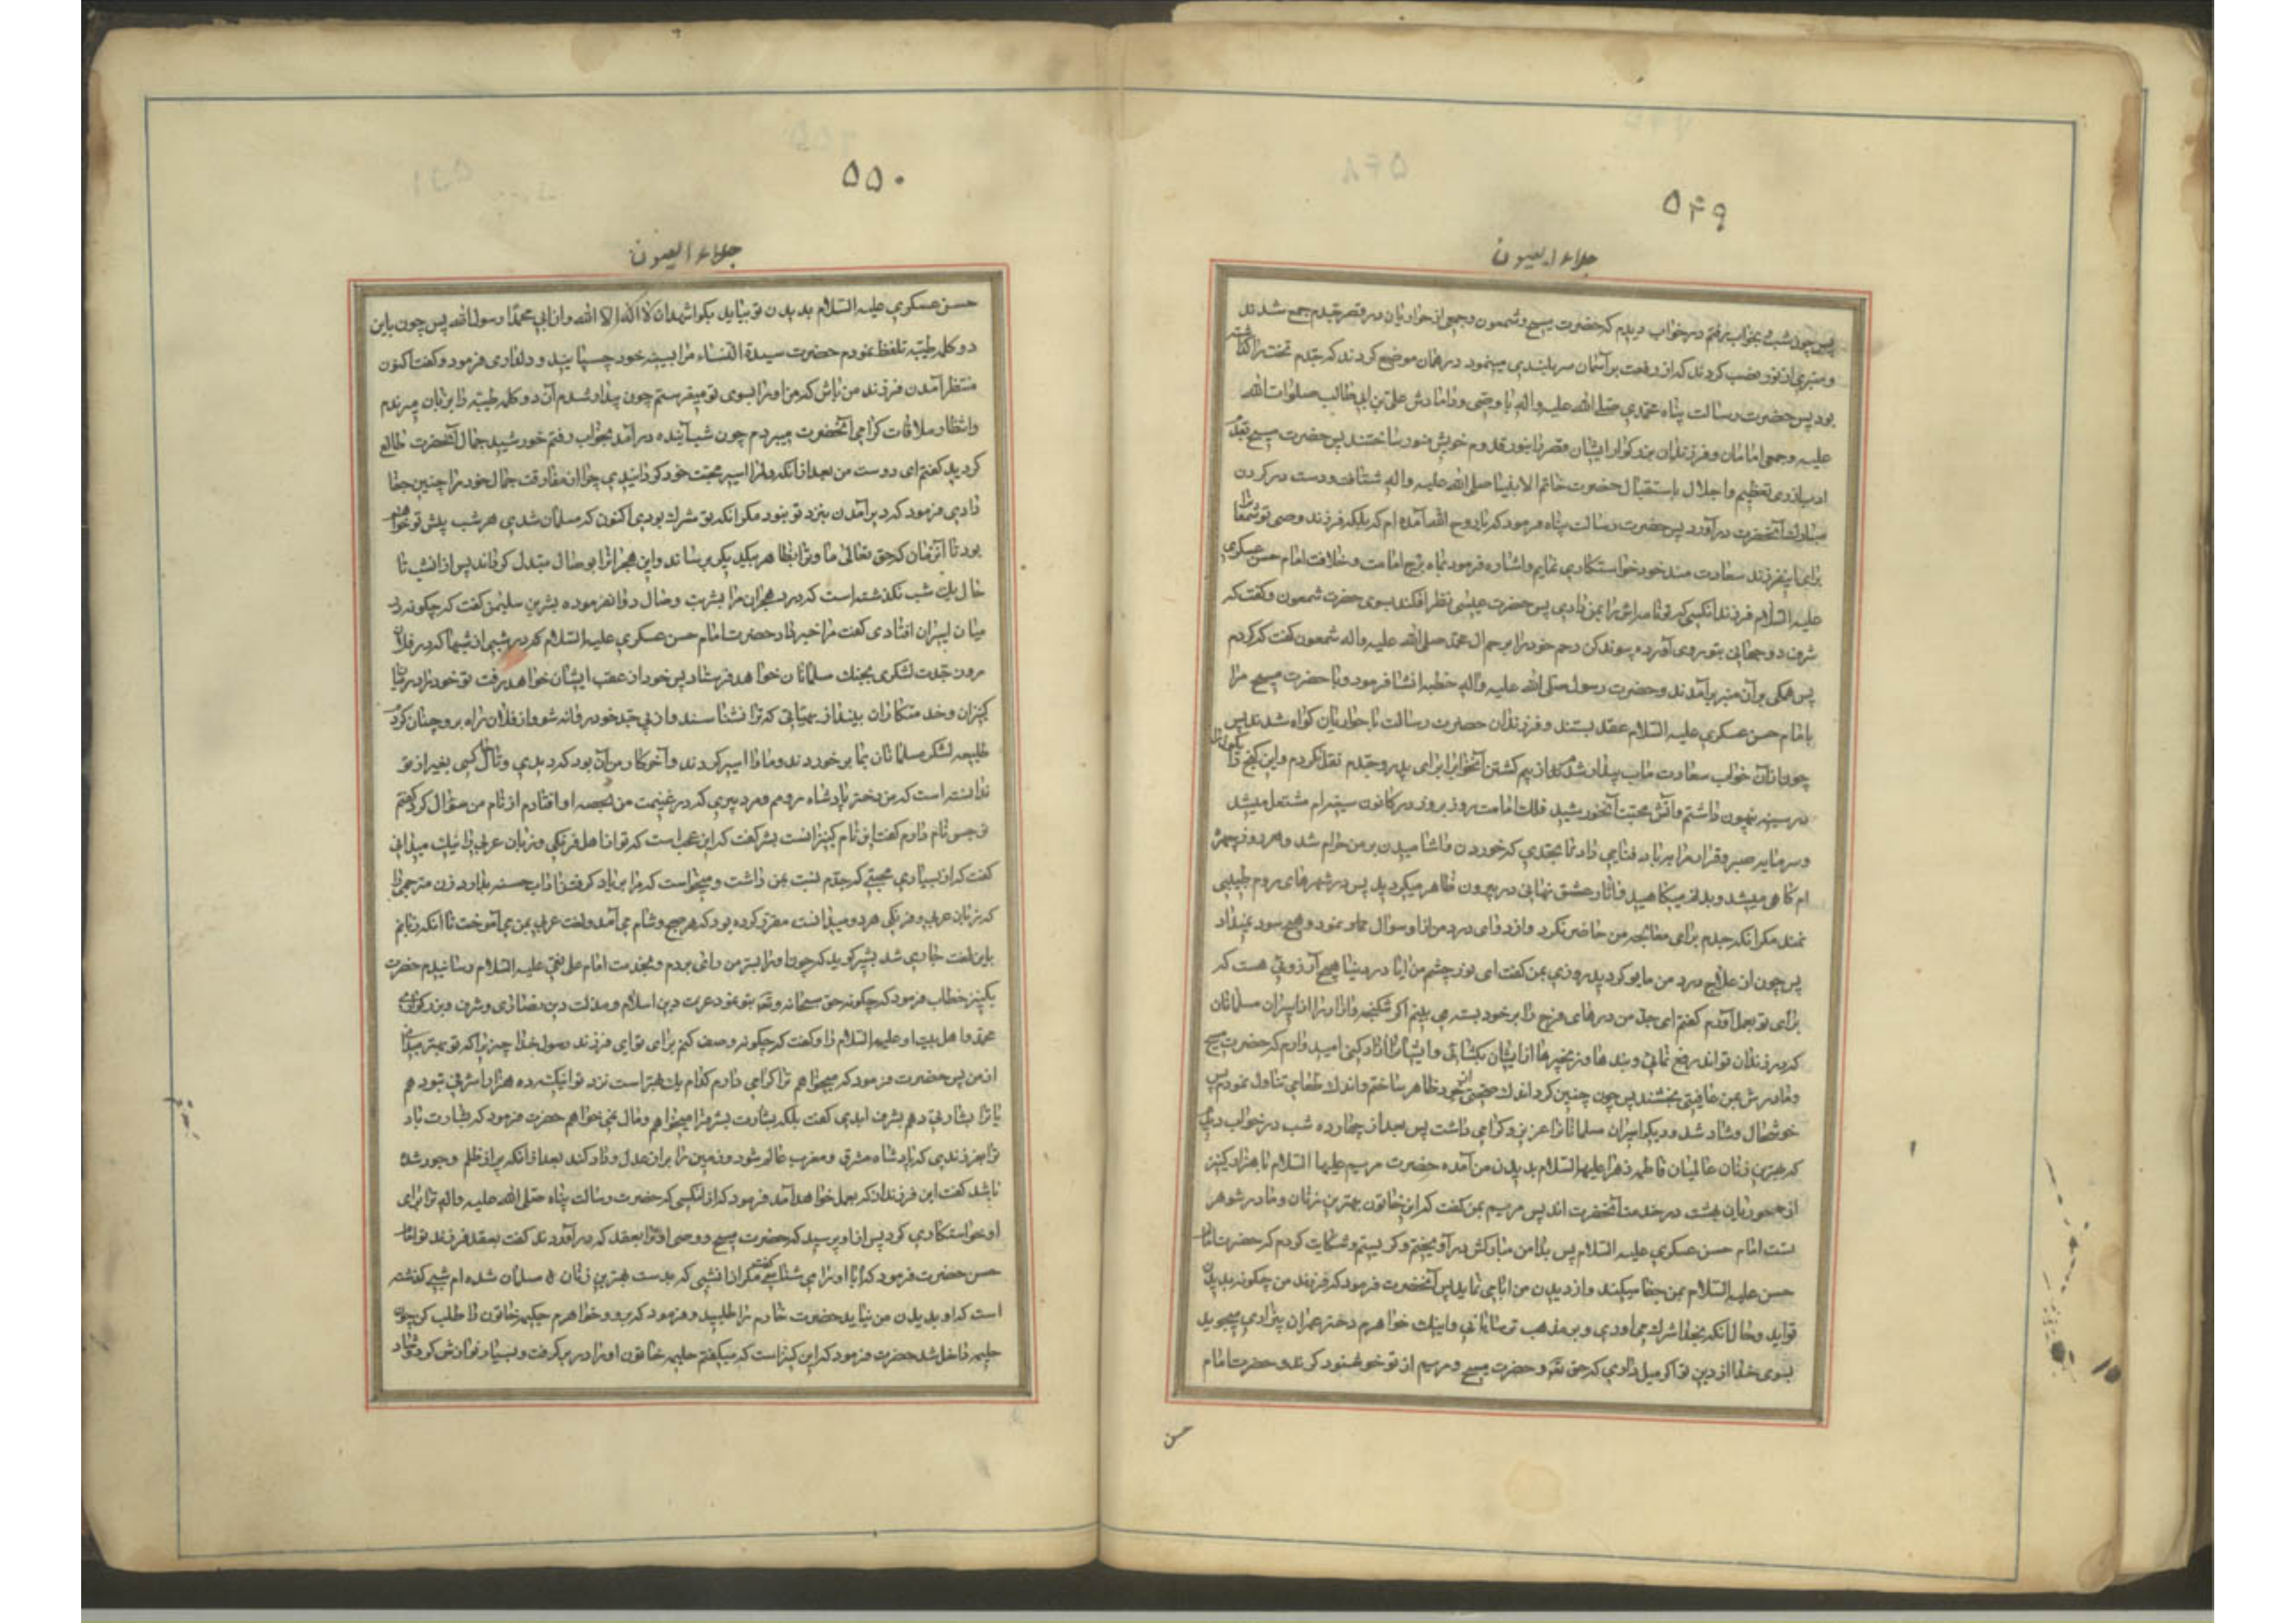 ۵۴۹
جلاء العیون
پس چون شب بخواب رفتم در خواب دیدم که حضرت مسیح و شمعون و جمعی از حواریان در قصر جدم جمع شدند
و منبری از نور نصب کردند که از رفعت بر آسمان سربلندی مینمود در همان موضع کردند که جدم تخت را گذاشته
بود پس حضرت رسالت پناه محمدی صلی الله علیه واله با وصی و دامادش علی بن ابی طالب صلوات الله
علیه و جمعی امامان و فرزندان بزرکوار ایشان قصر را بنور قدوم خویش منور ساختند پس حضرت مسیح بقدم
ادب از روی تعظیم و اجلال باستقبال حضرت خاتم الانبیا صلی الله علیه واله شتافت و دست در کردن
مبارک آنحضرت در آورد پس حضرت رسالت پناه فرمود که یا روح الله آمده ام که ملیکه فرزند وصی تو شمعون را
برای این فرزند سعادت مند خود خواستکاری نمایم و اشاره فرمود بماه برج امامت و خلافت امام حسن عسکری
علیه السلام فرزند انکسی که تو نامه اش را بمن دادی پس حضرت عیسی نظر افکند بسوی حضرت شمعون و کفت که
شرف دو جهانی بتو روی آورده پیوند کن رحم خود را برحم ال محمد صلی الله علیه واله شمعون کفت که کردم
پس همکی بر آن منبر بر آمدند و حضرت رسول صلی الله علیه واله خطبه انشا فرمود و با حضرت مسیح مرا
بامام حسن عسکری علیه السلام عقد بستند و فرزندان حضرت رسالت با حواریان کواه شدند پس
چون از آن خواب سعادت ماب بیدار شدم از بیم کشتن آنخواب را برای پدر و جدم نقل نکردم و این کنج رایکان را
در سینه پنهان داشتم و آتش محبت آنخورشید فلک امامت روز بروز در کانون سینه ام مشتعل میشد
و سرمایه صبر و قرار مرا بر باد فنا می داد تا بحدی که خوردن و اشامیدن بر من حرام شد و هر روز چهره
ام کاهی میشد و بدن میکاهید و اثار عشق نهانی در بیرون ظاهر میکردید پس در شهرهای روم طبیبی
نماند مکر انکه جدم برای معالجه من حاضر نکرد و از دوای درد من از او سوال ننمود و هیچ سود نمیداد
پس چون از علاج درد من مایوس کردید روزی بمن کفت ای نور چشم من ایا در دنیا هیچ آرزوئی هست که
برای تو بعمل آورم کفتم ای جد من درهای فرج را بر خود بسته می بینم اکر شکنجه و ازار را از اسیران مسلمانان
که در زندان تواند رفع نمائی و بندها و زنجیرها از ایشان بکشائی و ایشان را ازاد کنی امید دارم که حضرت مسیح
و مادرش بمن عافیتی بخشند پس چون چنین کرد اندک صحتی از خود ظاهر ساختم و اندک طعامی تناول نمودم پس
خوشحال و شاد شد و دیکر اسیران مسلمانان را عزیز و کرامی داشت پس بعد از چهارده شب در خواب دیدم
که بهترین زنان عالمیان فاطمه زهرا علیها السلام بدیدن من آمده حضرت مریم علیها السلام با هزار کنیز
از حوریان بهشت در خدمت آنحضرت اند پس مریم بمن کفت که این خاتون بهترین زنان و مادر شوهر
تست امام حسن عسکری علیه السلام پس بدامن مبارکش در آویختم و کریستم و شکایت کردم که حضرت امام
حسن علیه السلام بمن جفا میکند و از دیدن من ابا می نماید پس آنحضرت فرمود که فرزند من چکونه بدیدن
تو آید و حال آنکه بخدا شرک می آوری و بر مذهب ترسایانی و اینک خواهرم مریم دختر عمران بیزاری میجوید
بسوی خدا از دین تو اکر میل داری که حق تعالی و حضرت مسیح و مریم از تو خوشنود کردند و حضرت امام
حسن
۵۵۰
جلاء العیون
حسن عسکری علیه السلام بدیدن تو بیاید بکو اشهد ان لا اله الا الله و ان ابی محمدا رسول الله پس چون باین
دو کلمه طیبه تلفظ نمودم حضرت سیدة النساء مرا بسینه خود چسپانید و دلداری فرمود و کفت اکنون
منتظر آمدن فرزند من باش که من او را بسوی تو میفرستم چون بیدار شدم آن دو کلمه طیبه را بر زبان میراندم
و انتظار ملاقات کرامی آنحضرت میبردم چون شب آینده در آمد بخواب رفتم خورشید جمال آنحضرت طالع
کردید کفتم ای دوست من بعد از آنکه دلم را اسیر محبت خود کردانیدی چرا از مفارقت جمال خود مرا چنین جفا
دادی فرمود که دیر آمدن بنزد تو نبود مکر انکه تو مشرک بودی اکنون که مسلمان شدی هر شب پیش تو خواهم
بود تا آن زمان که حق تعالی ما و ترا بظاهر بیکدیکر برساند و این هجر ان را بوصال مبدل کرداند پس از انشب تا
حال یک شب نکذشته است که درد هجران مرا بشربت وصال دوا نفرموده بشر بن سلیمن کفت که چکونه در
میان اسیران افتادی کفت مرا خبر داد حضرت امام حسن عسکری علیه السلام که در شبی از شبها که در فلان
روز جدت لشکری بجنک مسلمانان خواهد فرستاد پس خود از عقب ایشان خواهد رفت تو خود را در میان
کنیزان و خدمتکاران بینداز بهیأتی که ترا نشناسند و از پی جد خود روانه شو و از فلان راه برو چنان کردم
طلیعه لشکر مسلمانان بما برخوردند و ما را اسیر کردند و آخر کار من آن بود که دیدی و تا حال کسی بغیر از تو
ندانسته است که من دختر پادشاه رومم و مرد پیری که در غنیمت من بحصه او افتادم از نام من سؤال کرد کفتم
نرجس نام دارم کفت این نام کنیزانست بشر کفت که این عجب است که تو از اهل فرنکی و زبان عربی را نیک میدانی
کفت که از بسیاری محبتی که جدم نسبت بمن داشت و میخواست که مرا بر یاد کرفتن اداب حسنه بدارد زن مترجمی را
که زبان عربی و فرنکی هر دو میدانست مقرر کرده بود که هر صبح و شام می آمد و لغت عربی بمن می آموخت تا انکه زبانم
باین لغت جاری شد بشر کوید که چون او را بسر من رائی بردم و بخدمت امام علی نقی علیه السلام رسانیدم حضرت
بکنیز خطاب فرمود که چکونه حق سبحانه و تعالی بتو نمود عزت دین اسلام و مذلت دین نصاری و شرف و بزرکواری
محمد و اهل بیت او علیهم السلام را کفت که چکونه وصف کنم برای تو ای فرزند رسول خدا چیزی را که تو بهتر میدانی
از من پس حضرت فرمود که میخواهم ترا کرامی دارم کدام یک بهتر است نزد تو اینکه ده هزار اشرفی بتو دهم
یا ترا بشارتی دهم بشرف ابدی کفت بلکه بشارت بشرف را میخواهم و مال نمی خواهم حضرت فرمود که بشارت باد
ترا بفرزندی که پادشاه مشرق و مغرب عالم شود و زمین را پر از عدل و داد کند بعد از آنکه پر از ظلم و جور شده
باشد کفت این فرزند از که بعمل خواهد آمد فرمود که از آنکسی که حضرت رسالت پناه صلی الله علیه واله ترا برای
او خواستکاری کرد پس از او پرسید که حضرت مسیح و وصی او ترا بعقد که در آوردند کفت بعقد فرزند تو امام
حسن حضرت فرمود که ایا او را می شناسی کفت مکر از انشبی که بدست بهترین زنان مسلمان شده ام شبی کذشته
است که او بدیدن من نیاید حضرت خادم را طلبید و فرمود که برو و خواهرم حکیمه خاتون را طلب کن چون
حلیمه داخل شد حضرت فرمود که این کنیز است که میکفتم حلیمه خاتون او را در بر کرفت و بسیار نوازش کرد و شاد